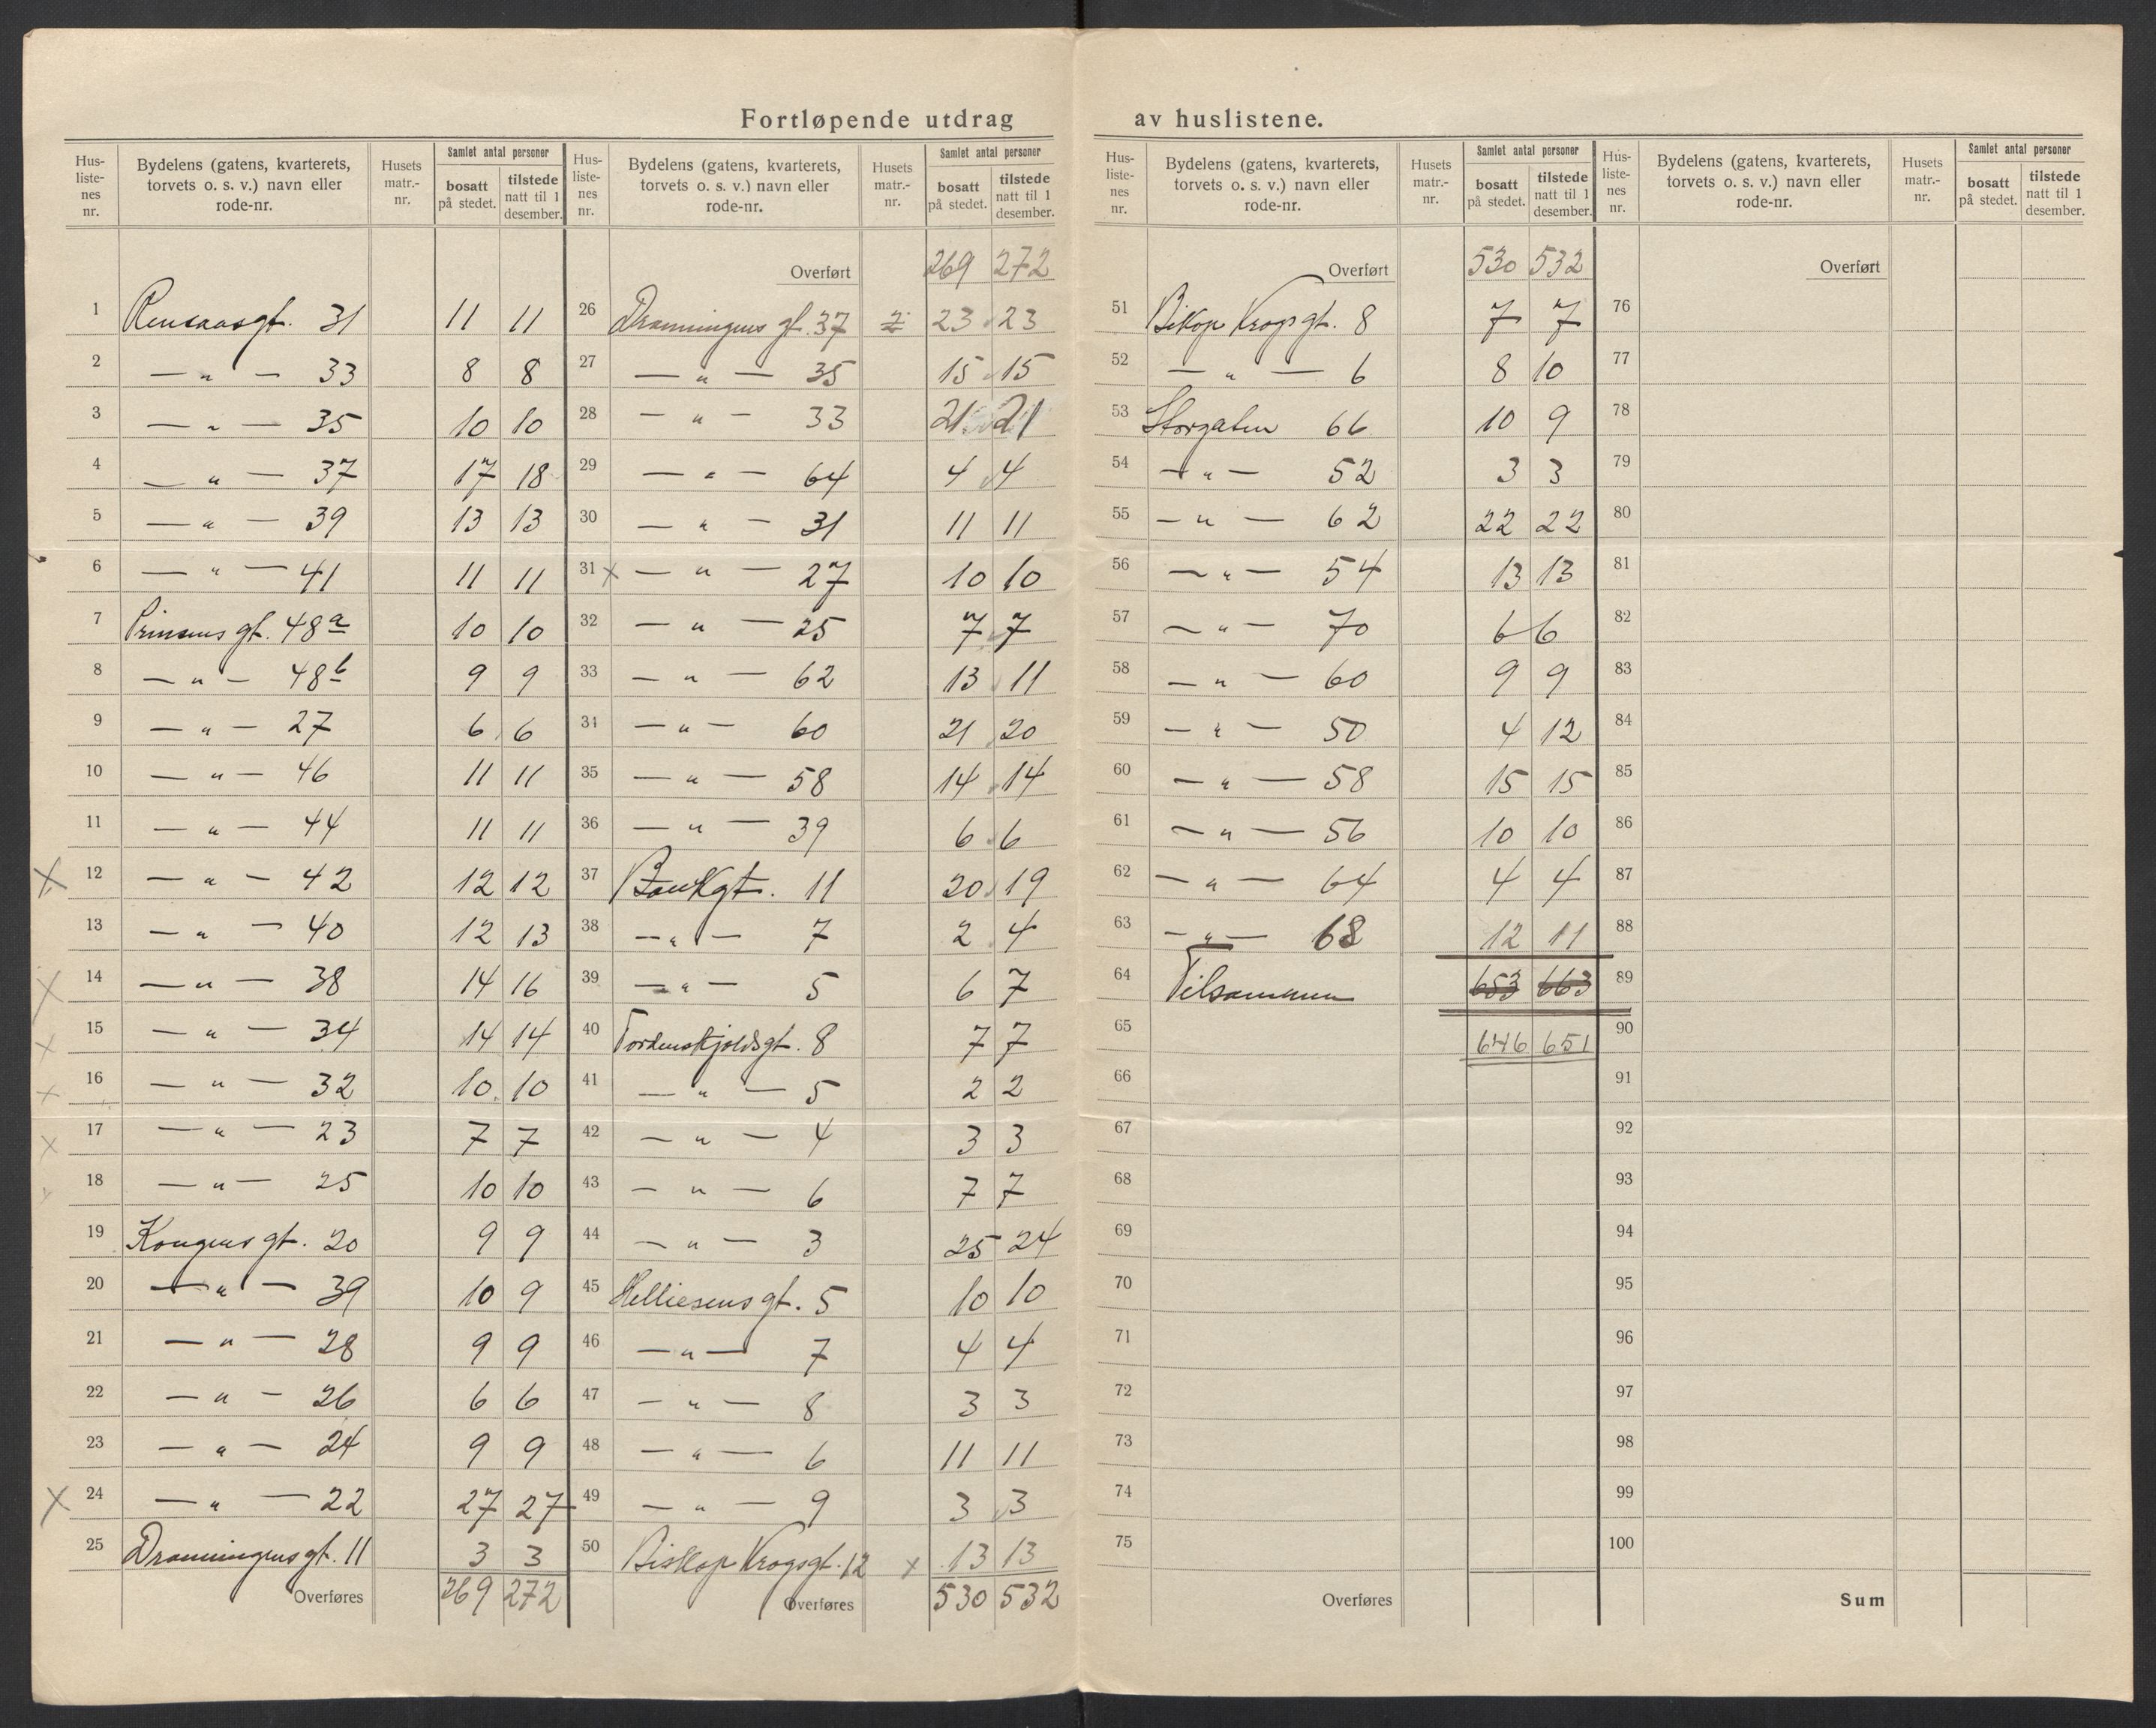 Fortløpende utdrag av huslistene.
Hus-listenes nr. Bydelens (gatens, kvarterets, torvets o. s. v.) navn eller rode-nr. Husets matr.-nr. Samlet antal personer bosatt på stedet. tilstede natt til 1 desember.
1 Rensaasgt. 31 11 11
2 — " — 33 8 8
3 — " — 35 10 10
4 — " — 37 17 18
5 — " — 39 13 13
6 — " — 41 11 11
7 Prinsens gt. 48a 10 10
8 — " — 48b 9 9
9 — " — 27 6 6
10 — " — 46 11 11
11 — " — 44 11 11
X 12 — " — 42 12 12
13 — " — 40 12 13
X 14 — " — 38 14 16
X 15 — " — 34 14 14
X 16 — " — 32 10 10
X 17 — " — 23 7 7
x 18 — " — 25 10 10
19 Kongens gt. 20 9 9
20 — " — 39 10 9
21 — " — 28 9 9
22 — " — 26 6 6
23 — " — 24 9 9
X 24 — " — 22 27 27
25 Dronningens gt. 11 3 3
Overføres 269 272
Hus-listenes nr. Bydelens (gatens, kvarterets, torvets o. s. v.) navn eller rode-nr. Husets matr.-nr. Samlet antal personer bosatt på stedet. tilstede natt til 1 desember.
Overført 269 272
26 Dronningens gt. 37 23 23
27 — " — 35 15 15
28 — " — 33 21 21
29 — " — 64 4 4
30 — " — 31 11 11
31 x — " — 27 10 10
32 — " — 25 7 7
33 — " — 62 13 11
34 — " — 60 21 20
35 — " — 58 14 14
36 — " — 39 6 6
37 Bankgt. 11 20 19
38 — " — 7 2 4
39 — " — 5 6 7
40 Tordenskjoldsgt. 8 7 7
41 — " — 5 2 2
42 — " — 4 3 3
43 — " — 6 7 7
44 — " — 3 25 24
45 Helliesens gt. 5 10 10
46 — " — 7 4 4
47 — " — 8 3 3
48 — " — 6 11 11
49 — " — 9 3 3
50 Biskop Krogsgt. 12 x 13 13
Overføres 530 532
Hus-listenes nr. Bydelens (gatens, kvarterets, torvets o. s. v.) navn eller rode-nr. Husets matr.-nr. Samlet antal personer bosatt på stedet. tilstede natt til 1 desember.
Overført 530 532
51 Bikop Krogs gt. 8 7 7
52 — " — 6 8 10
53 Storgaten 66 10 9
54 — " — 52 3 3
55 — " — 62 22 22
56 — " — 54 13 13
57 — " — 70 6 6
58 — " — 60 9 9
59 — " — 50 4 12
60 — " — 58 15 15
61 — " — 56 10 10
62 — " — 64 4 4
63 — " — 68 12 11
64 Tilsammen 653 663
65 646 651
66
67
68
69
70
71
72
73
74
75
Overføres
Hus-listenes nr. Bydelens (gatens, kvarterets, torvets o. s. v.) navn eller rode-nr. Husets matr.-nr. Samlet antal personer bosatt på stedet. tilstede natt til 1 desember.
Overført
76
77
78
79
80
81
82
83
84
85
86
87
88
89
90
91
92
93
94
95
96
97
98
99
100
Sum